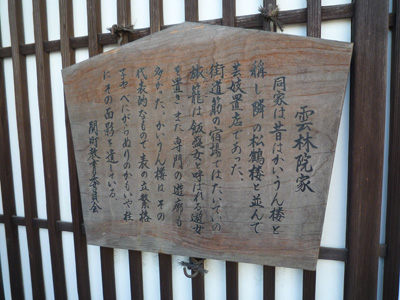 雲林院家
同家は昔はかいうん楼と
称し隣の松鶴楼と並んで
芸妓置店であった。
街道筋の宿場ではたいていの
旅籠は飯盛女と呼ばれる遊女
を置き、また専門の遊廓も
多かった。かいうん楼は、その
代表的なもので、表の立繁格
子や、べんがらぬりのかもいや柱
にその面影を遺している。
関町教育委員会